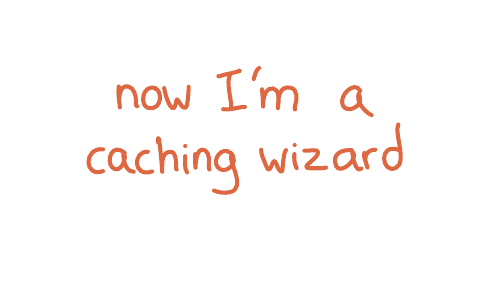 now I'm a
caching wizard